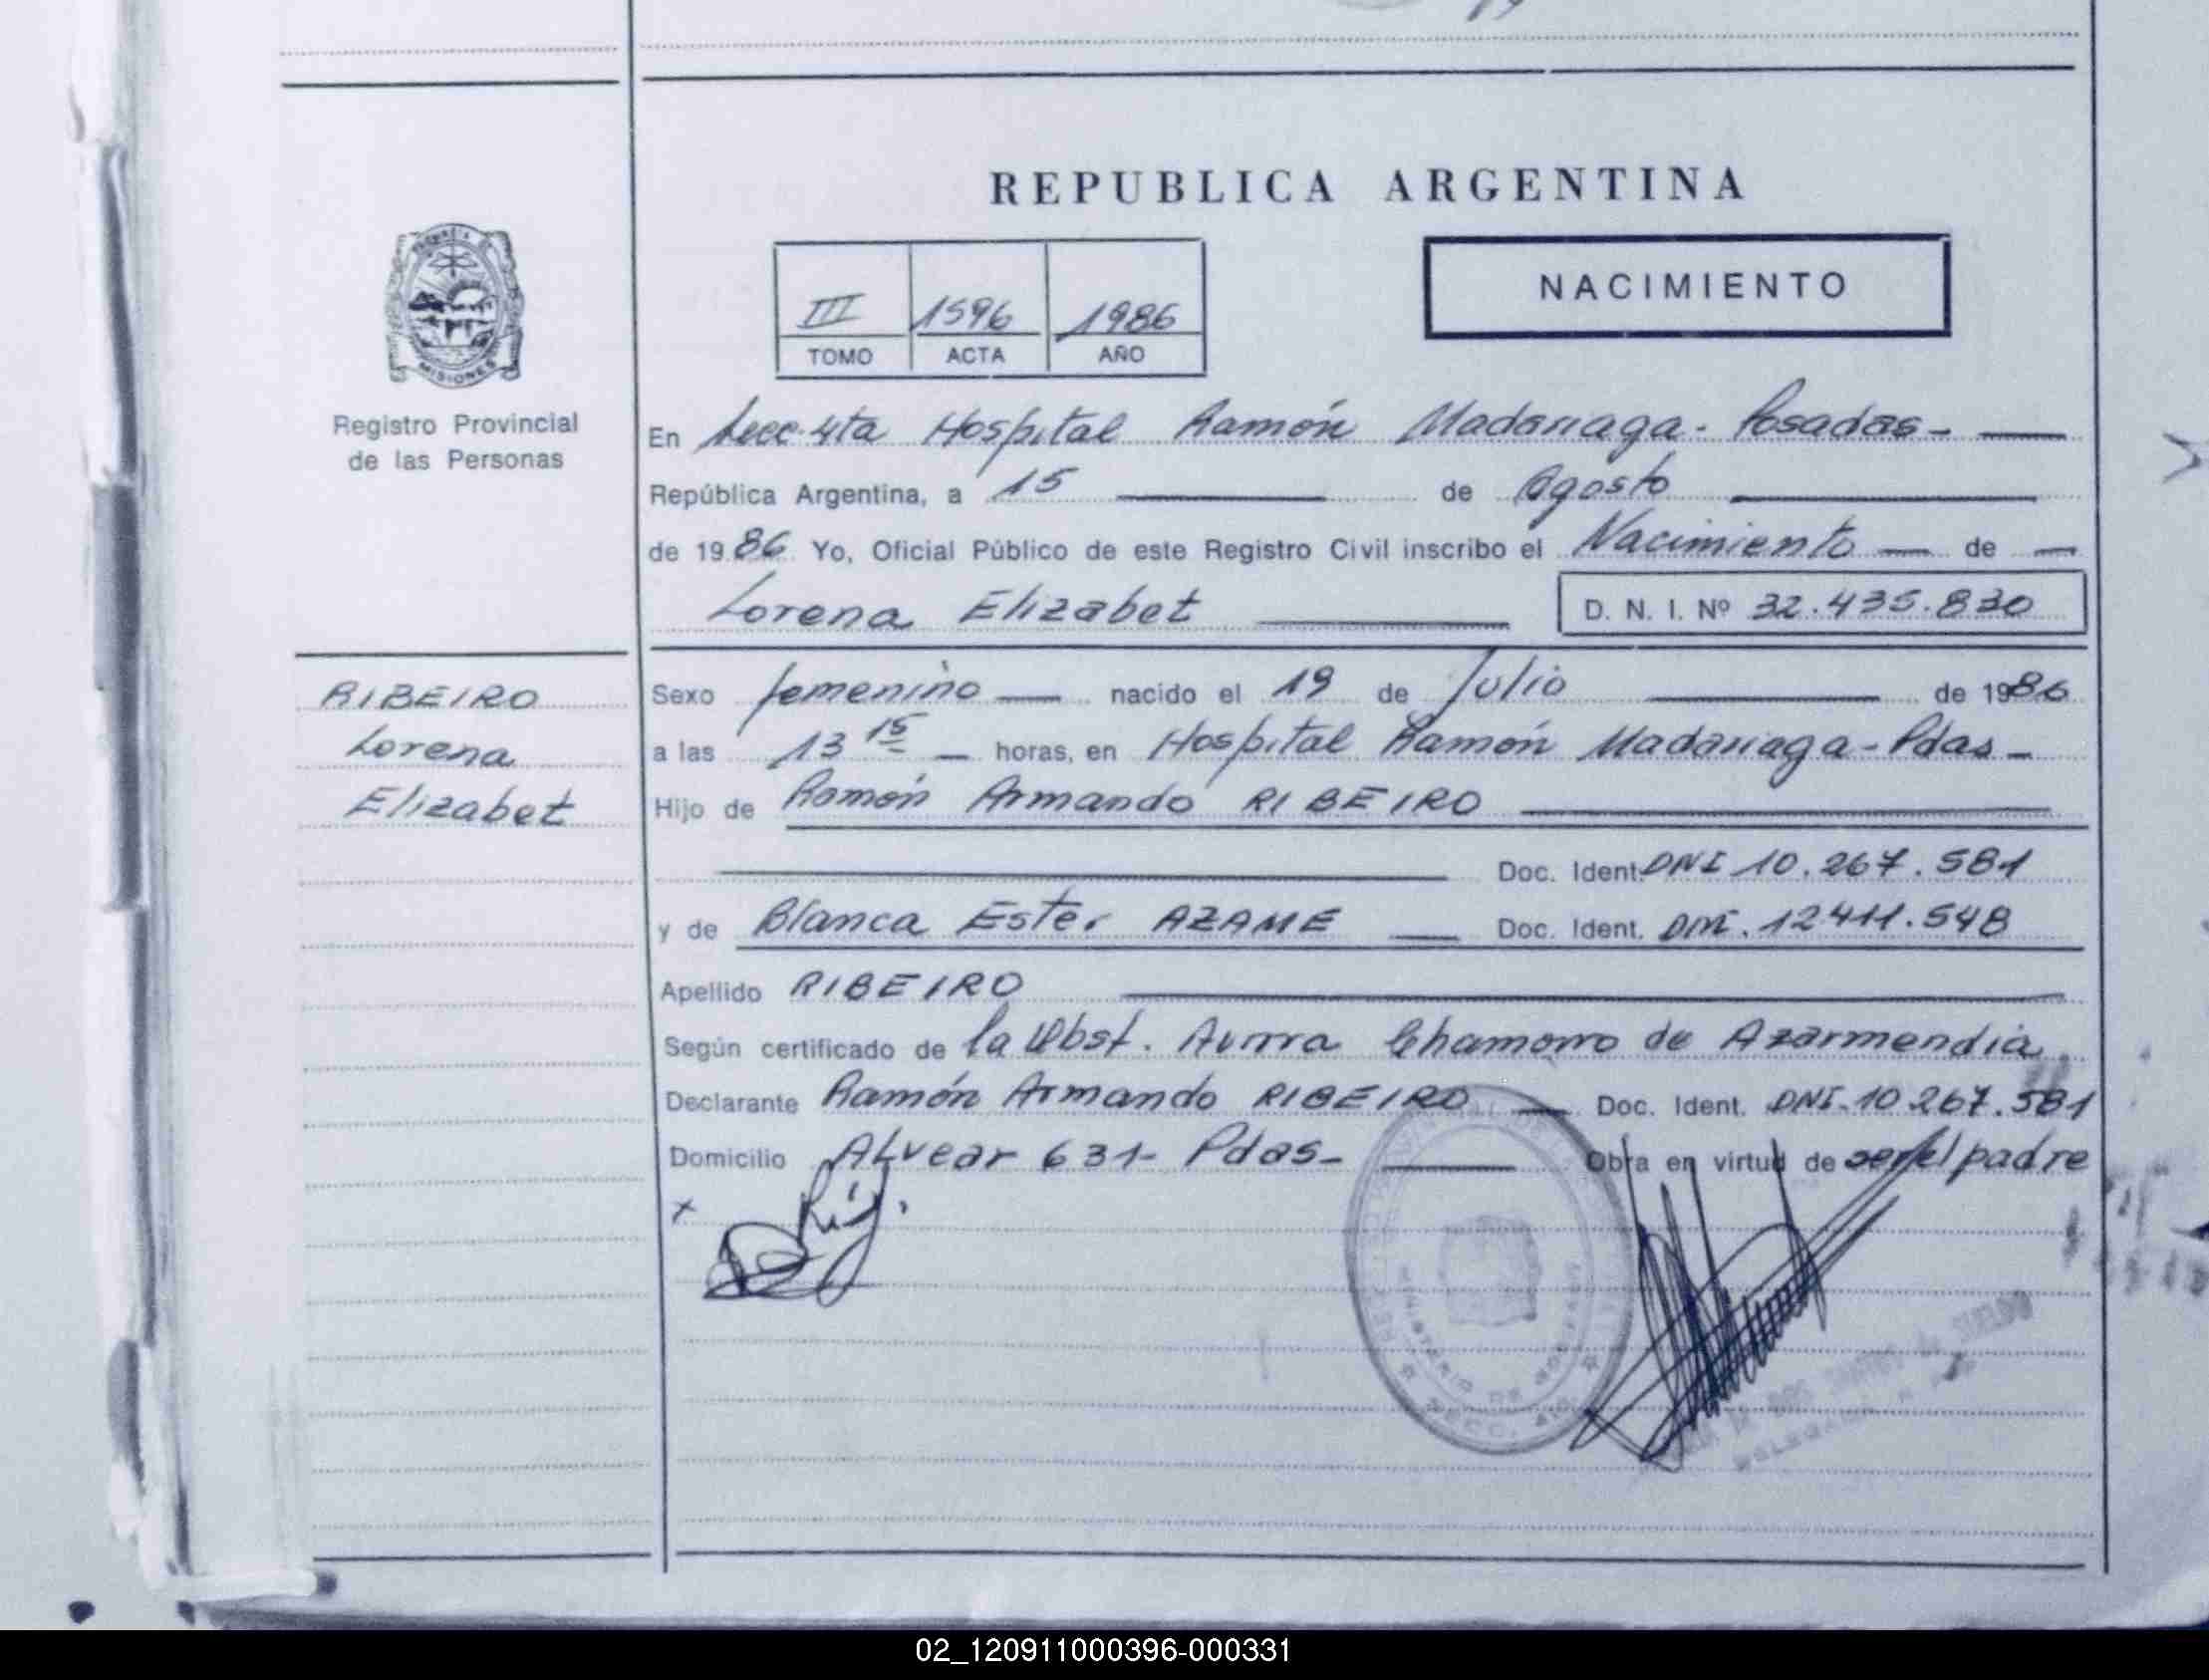 REPUBLICA ARGENTINA
NACIMIENTO
III 1596 1986
TOMO ACTA AÑO
MISIONES
Registro Provincial
de las Personas
En Secc. 4ta Hospital Ramón Madariaga - Posadas -
República Argentina, a 15 de Agosto
de 1986 Yo, Oficial Público de este Registro Civil inscribo el Nacimiento de
Lorena Elizabet D. N. I. Nº 32.435.830
RIBEIRO
Lorena
Elizabet
Sexo femenino nacido el 19 de Julio de 1986
a las 13 15 horas, en Hospital Ramón Madariaga - Pdas -
Hijo de Ramón Armando RIBEIRO
Doc. Ident. DNI 10.267.581
y de Blanca Ester AZAME Doc. Ident. DNI. 12411.548
Apellido RIBEIRO
Según certificado de la Obst. Aurora Chamorro de Azarmendia
Declarante Ramón Armando RIBEIRO Doc. Ident. DNI. 10.267.581
Domicilio Alvear 631- Pdas- Obra en virtud de ser el padre
x
MINISTERIO DE
02_120911000396-000331